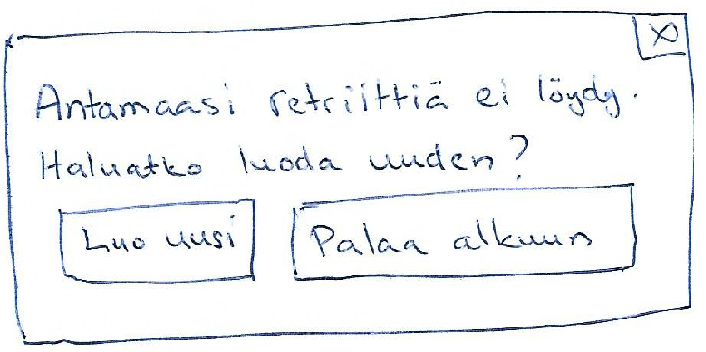 X
Antamaasi retriittiä ei löydy.
Haluatko luoda uuden?
Luo uusi
Palaa alkuun